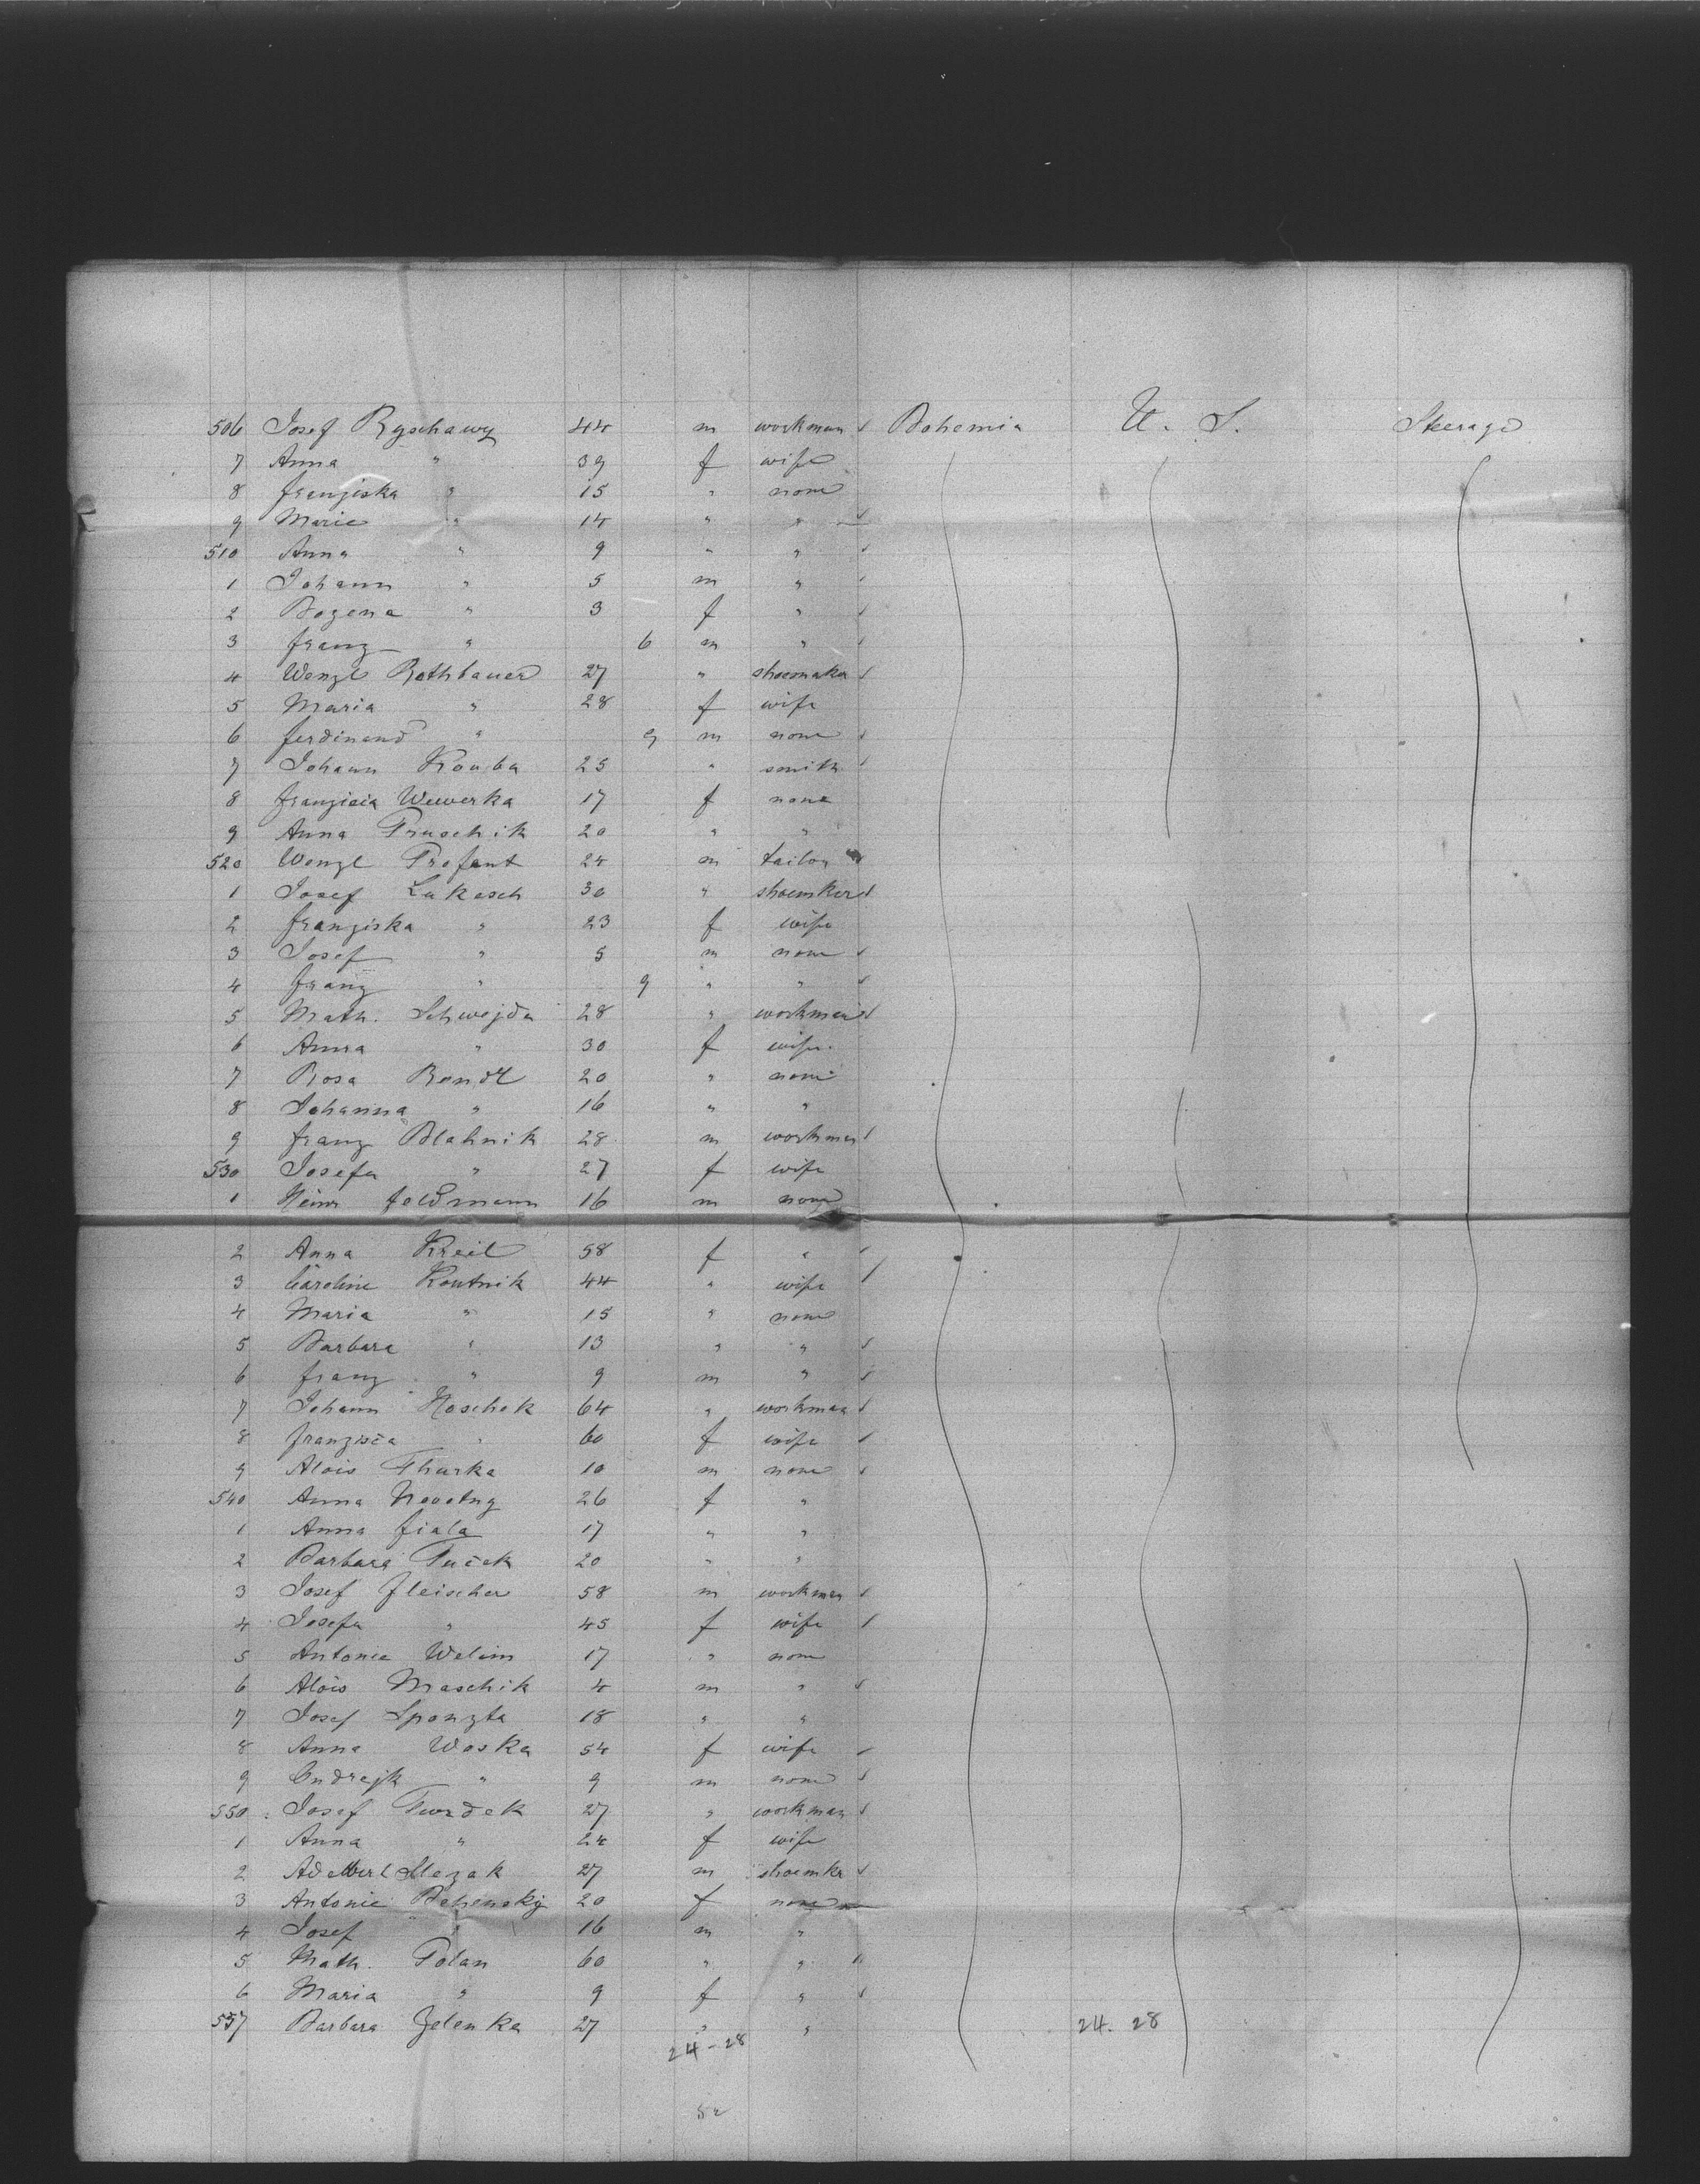 506 Josef Ryschawy 44 m workman Bohemia U. S. Steerage
7 Anna " 39 f wife
8 franziska " 15 " none
9 Marie " 14 " "
510 Anna " 9 " "
1 Johann " 5 m "
2 Bozena " 3 f "
3 franz " 6 m "
4 Wenzl Rothbauer 27 " shoemaker
5 Maria " 28 f wife
6 ferdinand " 9 m none
7 Johann Kouba 25 " smith
8 Wewerka 17 f none
9 Anna Pruschik 20 " "
520 Wenzl Profant 24 m tailor
1 Josef Lukesch 30 " shoemker
2 franziska " 23 f wife
3 Josef " 5 m none
4 franz " 9 " "
5 Math. Schwejda 28 " workman
6 Anna " 30 f wife.
7 Rosa Bendl 20 " none
8 Johanna " 16 " "
9 franz Blahnik 28 m workman
530 Josefa " 27 f wife
1 Heinr feldmann 16 m none
2 Anna Kreil 58 f "
3 Caroline Koutnik 44 " wife
4 Maria " 15 " none
5 Barbara " 13 " "
6 franz " 9 m "
7 Johann Hoschek 64 " workman
8 " 60 f wife
9 Alois 10 m none
540 Anna Novotny 26 f "
1 Anna fiala 17 " "
2 Barbara Tuček 20 " "
3 Josef Fleischer 58 m workman
4 Josefa " 45 f wife
5 Antonie Welim 17 " none
6 Alois Maschik 4 m "
7 Josef 18 " "
8 Anna Woska 54 f wife
9 " 9 m none
550 Josef Twrdek 27 " workman
1 Anna " 24 f wife
2 Adelbert Slezak 27 m shoemkr
3 Antonie 20 f none
4 Josef " 16 m "
5 Math. Polan 60 " "
6 Maria " 9 f "
557 Barbara Zelenka 27 " " 24. 28
24-28
52